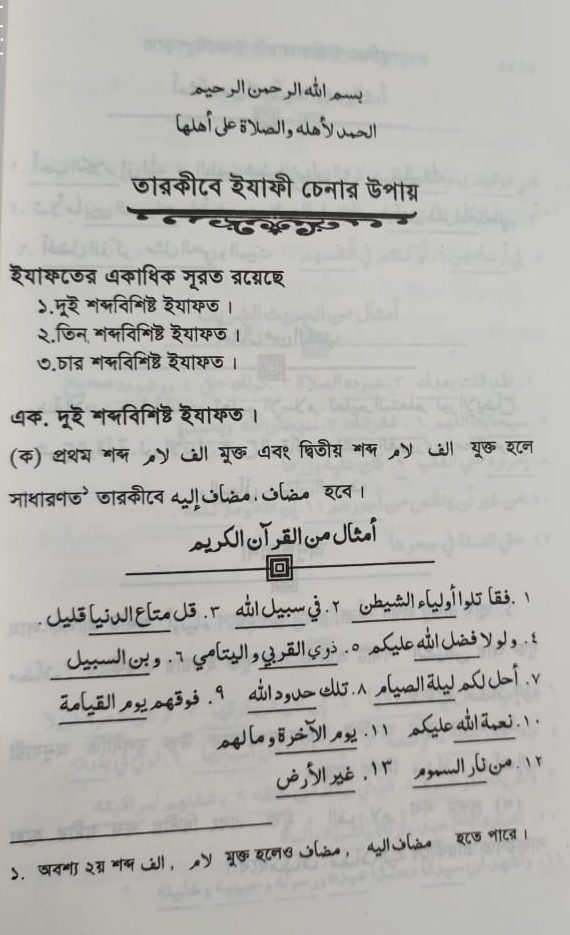 بسم الله الرحمن الرحيم
الحمد لأهله والصلاة على أهلها
তারকীবে ইযাফী চেনার উপায়
ইযাফতের একাধিক সূরত রয়েছে
১.দুই শব্দবিশিষ্ট ইযাফত।
২.তিন শব্দবিশিষ্ট ইযাফত।
৩.চার শব্দবিশিষ্ট ইযাফত।
এক. দুই শব্দবিশিষ্ট ইযাফত।
(ক) প্রথম শব্দ الف لام মুক্ত এবং দ্বিতীয় শব্দ الف لام যুক্ত হলে
সাধারণত১ তারকীবে مضاف، مضاف إليه হবে।
أمثال من القرآن الكريم
١. فقا تلوا أولياء الشيطن ٢. في سبيل الله ٣. قل متاع الدنيا قليل.
٤. ولو لا فضل الله عليكم ٥. ذوي القربي و اليتامي ٦. و بن السبيل
٧. أحل لكم ليلة الصيام ٨. تلك حدود الله ٩. فوقهم يوم القيامة
١٠. نعمة الله عليكم ١١. يوم الآخرة و ما لهم
١٢. من نار السموم ١٣. غير الأرض
১. অবশ্য ২য় শব্দ الف، لام যুক্ত হলেও مضاف، مضاف اليه হতে পারে।